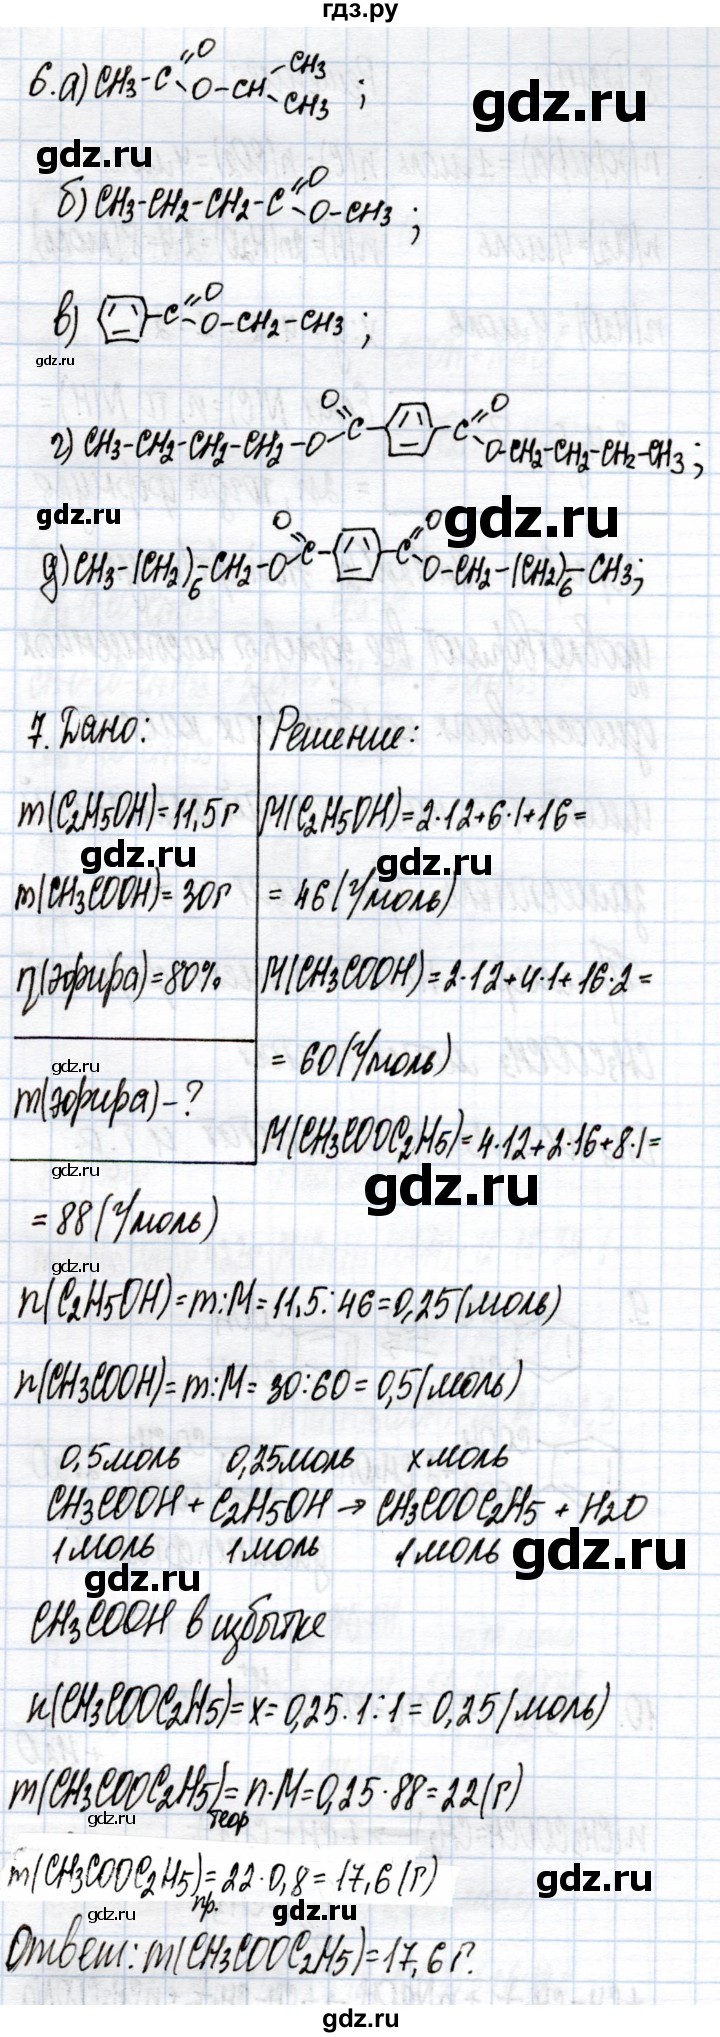 гдз.ру
6. а) CH3-C=O-O-CH-CH3 CH3;
gdz.ru
gdz.ru
б) CH3-CH2-CH2-C=O-O-CH3;
в) -C=O-O-CH2-CH3;
gdz.ru
г) CH3-CH2-CH2-CH2-O-C=O C=O-O-CH2-CH2-CH2-CH3;
gdz.ru
gdz.ru
д) CH3-(CH2)6-CH2-O-C=O C=O-O-CH2-(CH2)6-CH3;
7. Дано:
Решение:
m(C2H5OH)=11,5г
M(C2H5OH)=2·12+6·1+16=
gdz.ru
gdz.ru
m(CH3COOH)=30г
=46(г/моль)
η(эфира)=80%
M(CH3COOH)=2·12+4·1+16·2=
gdz.ru
=60(г/моль)
m(эфира)-?
M(CH3COOC2H5)=4·12+2·16+8·1=
gdz.ru
gdz.ru
=88(г/моль)
gdz.ru
n(C2H5OH)=m:M=11,5:46=0,25(моль)
n(CH3COOH)=m:M=30:60=0,5(моль)
0,5моль 0,25моль x моль
CH3COOH+C2H5OH→CH3COOC2H5+H2O
1моль 1моль 1моль
gdz.ru
gdz.ru
CH3COOH в избытке
n(CH3COOC2H5)=x=0,25·1:1=0,25(моль)
m(CH3COOC2H5)теор=n·M=0,25·88=22(г)
gdz.ru
m(CH3COOC2H5)пр.=22·0,8=17,6(г)
gdz.ru
gdz.ru
gdz.ru
Ответ: m(CH3COOC2H5)=17,6г.
gdz.ru